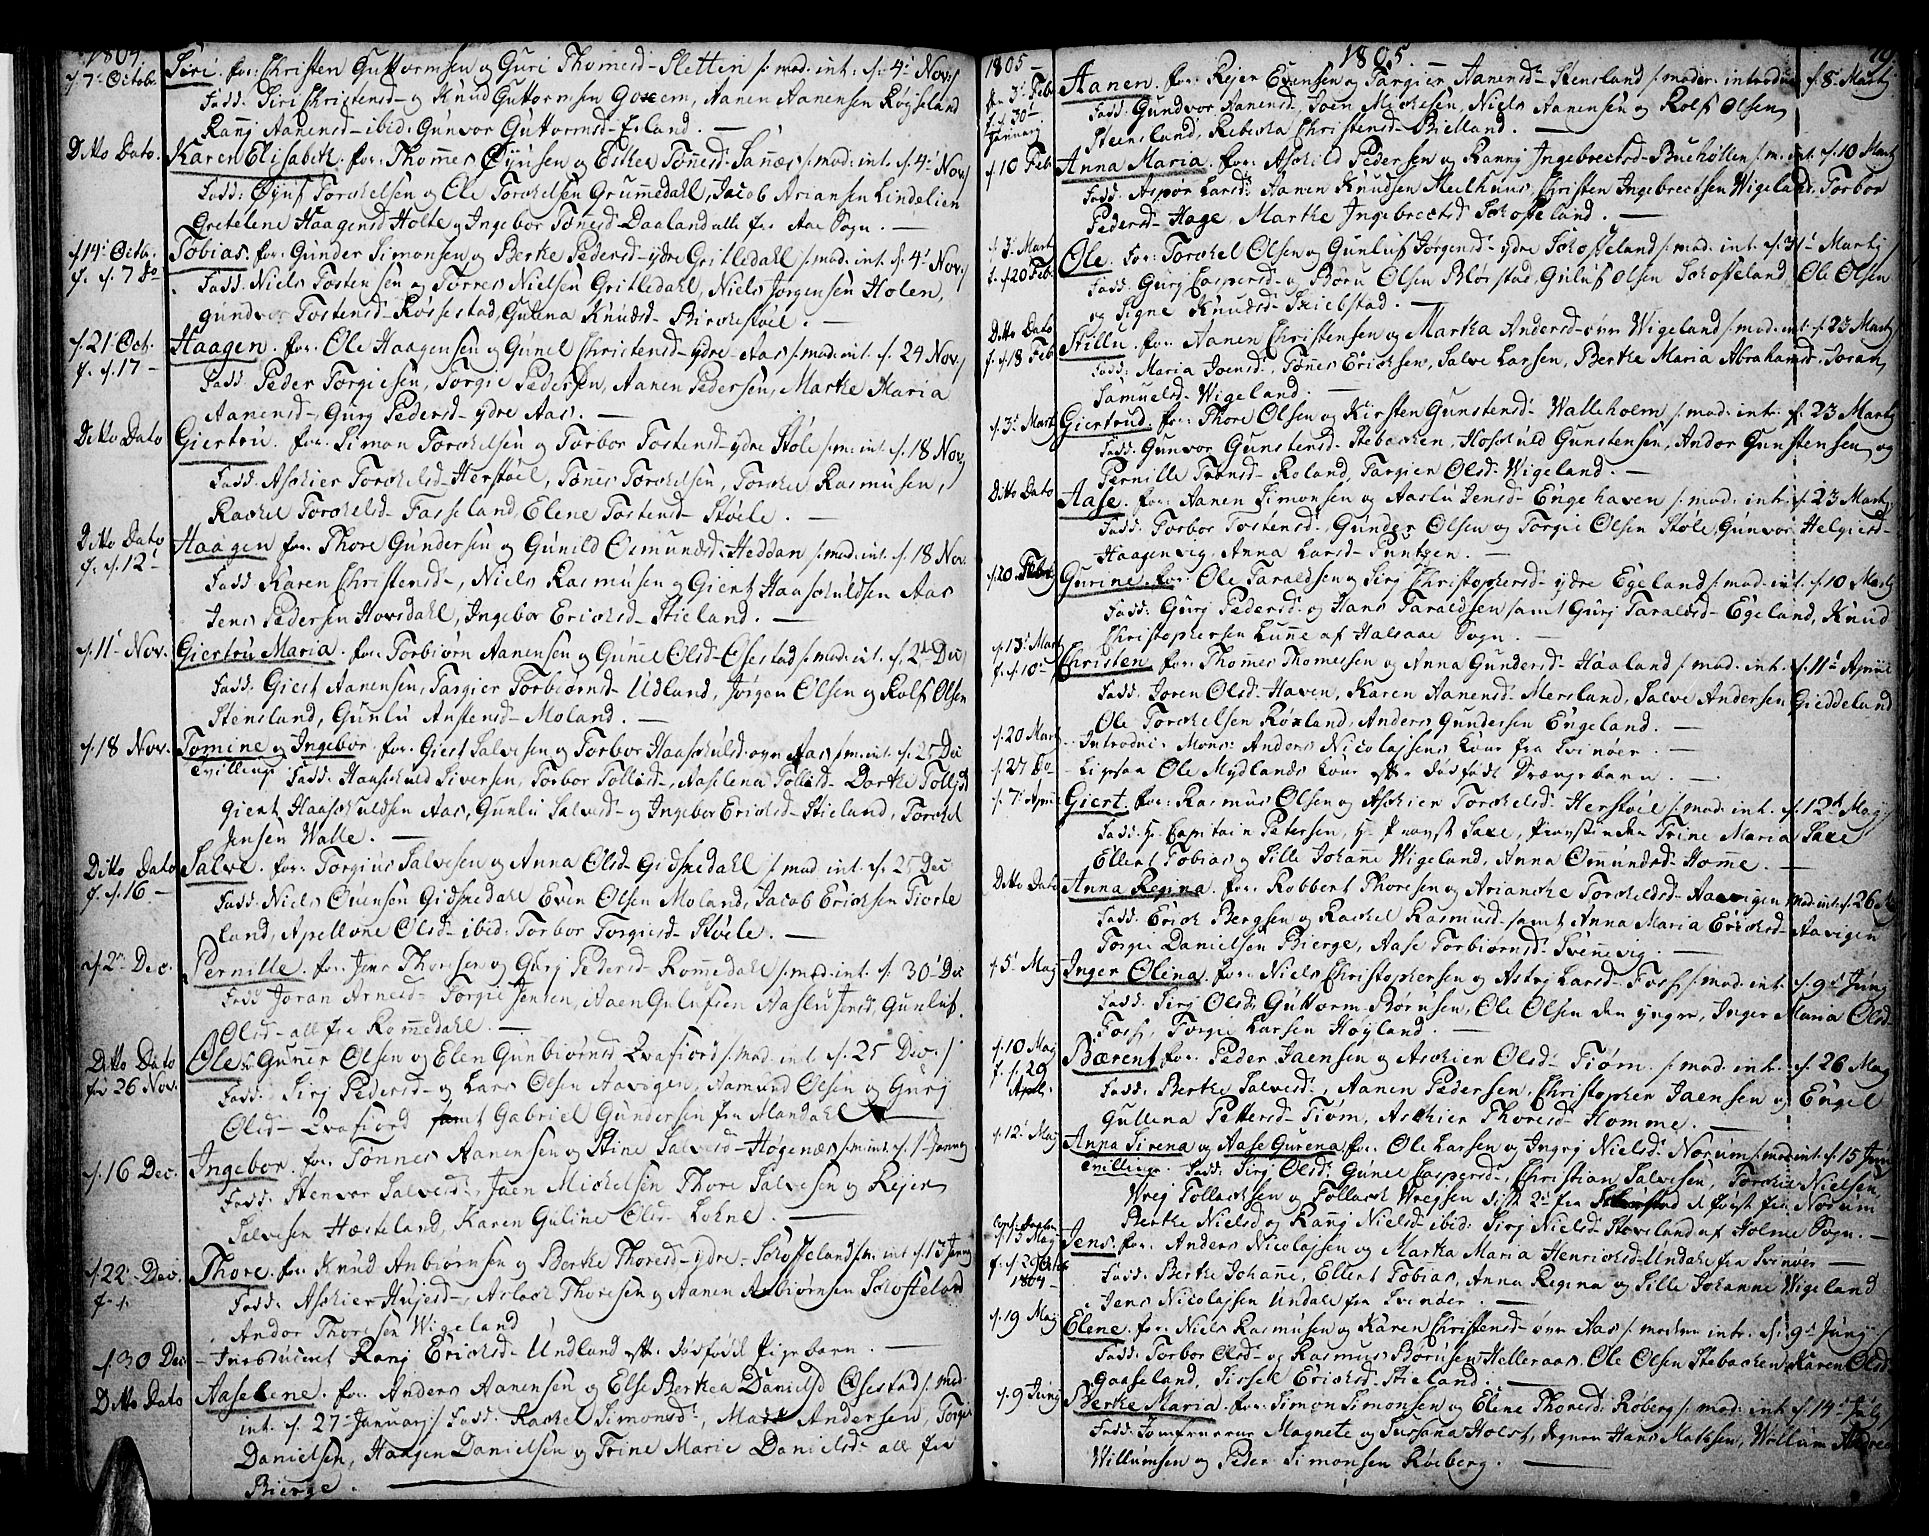 1804
d. 7de Octobr. Siri. for: Christen Guttormsen og Guri Thomesd. Sletten /: mod: int: d. 4de Nov:/
Fadd: Siri Christensd. og Knud Guttormsen Aanen Aanensen Røysland
Rannj Aanensd. ibid: Gunvor Guttormsd. Erland. —
Ditto Dato. Karen Elisabeth. for: Thommes Øynsen og Esther Tønnesd. Sannæs /: mod: int. d. 4de Nov:/
Fadd: Øynf Torckelsen og Ole Torckelsen Grummedahl, Jacob Ariansen Lindelien
Gretelene Haagensd Holte og Ingebor Tønnesd. Daaland alle fra Aae Sogn. —
d. 14de Octbr. Tobias. for: Gunder Simonsen og Berte Pedersd. ydre Gritledahl /: mod: int. d. 4de Nov:/
f. d. 7 Do Fadd: Niels Tostensen og Torres Nielsen Gritledahl, Niels Jorgensen Holen,
gundvor Tostensd. Rossestad, Gurina Knudsd. Birckestøel. —
d. 21de Oct. Haagen. for: Ole Haagensen og Gunel Christensd. ydre Aas /: mod: int. d. 24 Nov:/
f. d. 17 — Fadd: Peder Torgiesen, Torgie Pedersen, Aanen Pedersen, Marthe Maria
Aanensd., Gurj Pedersd. ydre Aas. —
Ditto Dato Giertru. for: Simon Torckelsen og Torbor Tostensd. ydre Støle /: m: int: d. 18 Nov:/
Fadd: Asckier Torckelsd. Herstøel, Tønnes Torckelsen, Torckel Rasmusen,
Rachel Torckelsd. Fasseland Elene Tostensd. Støele. —
Ditto Dato Haagen for: Thore Gundersen og Gunild Osmundsd. Heddan /: mod: int. d. 18 Nov.
f. d. 12te Fadd: Karen Christensd., Niels Rasmusen og Giert Haaskuldsen Aas
Jens Pedersen Hovsdahl, Ingebor Ericksd. Stieland. —
d. 11te Nov. Giertru Maria. for: Torbiørn Aanensen og Gunnel Olsd. Øfestad /: mod: int. d. 2de Dec:/
Fadd: Giert Aanensen, Targier Torbiørnsd. Udland, Jorgen Olsen og Rolf Olsen
Stensland, Gunlu Anstensd. Moland. —
d. 18 Nov. Tomine og Ingebor. for: Giert Salvesen og Torbor Haaskulsd. øvre Aas /: m: int. d. 25 Dec
Tvillinge Fadd: Haaskuld Siversen, Torbor Tollisd. Aaslena Tollisd. Dorthe Tollisd
Giert Haaskuldsen Aas, Gunlu Salvesd. og Ingebor Ericksd. Stieland, Torckel
Jensen Walle. —
Ditto Dato Salve. for: Torgius Salvesen og Anna Olsd. Gidskedahl /: mod int. d. 25 Dec
f. d. 16. — Fadd: Niels Evensen Gidskedahl Even Olsen Moland, Jacob Ericksen Tiorte
land, Apellone Olsd. ibid: Torbor Torgiesd. Støele. —
d. 2de Dec. Pernille. for: Jens Thoresen og Gurj Pedersd. Rommedahl /: mod: int. d. 30te Dec
Fadd: Joran Arnesd. Torgie Jensen, Aaen Gulufsen Aaslu Jensd, Gunluf.
Olsd. all fra Rommedahl. —
Ditto Dato Ole. Guner Olsen og Elen Gunbiørnsd Qvafiord /: mod: int d. 25 Dec:/
fd 26 Nov. Fadd: Sirj Pedersd. og Lars Olsen Aavigen, Aamund Olsen og Gurj
Olsd. Qvafiord samt Gabriel Gundersen fra Mandahl
d. 16 Dec. Ingebor. for: Tønnes Aanensen og Stine Salvesd. Høgenæs /: m: int. d. 1te Janny
Fadd: Stenvor Salvesd., Jaen Mickelsen Thore Salvesen og Rejer
Salvesen Hæsteland, Karen Guline Olsd. Lohne. —
d. 22de Dec. Thore. for: Knud Anbiørnsen og Berthe Thoresd. ydre Skoffeland /: m: int d. 13 Janny
f. d. Fadd: Asckier Aujersd. Aslack Thoresen og Aanen Anbiørnsen Skoffeland
Andor Thoresen Wigeland
d. 30 Dec. — Introduceret Ranj Ericksd. Undland eft. dødfødt Pigebarn. —
Ditto Dato Aaselene. for: Anders Aanensen og Else Berthea Danielsd Øfestad /: mod:
int. d. 27de Januarj/ Fadd: Rachel Simonsd., Mads Andersen, Torgie
Danielsen, Haagen Danielsen og Trine Marie Danielsd. all fra
Bierge. —
1805 — 1805. 79.
den 3de Feb. Aanen. for: Rejer Evensen og Targier Aanensd. Stensland /: moder introdu: d. 8de Martj
f. d. 30te Fadd: Gundvor Aanensd. Soen Mickesen, Niels Aanensen og Rolf Olsen
January Steensland, Rebecka Christensd. Bielland. —
d. 10 Feb. Anna Maria. for: Askild Pedersen og Rannj Ingebrectsd. Buehølten /: m. int. d. 10 Martj
Fadd: Aspor Larsd. Aanen Knudsen Meelhuus, Christen Ingebrectsen Wigeland, Torbor
Pedersd. Hage, Marthe Ingebrectsd Skoffeland. —
d. 3de Martj Ole. for: Torckel Olsen og Gunluf Jorgensd. ydre Skoffeland /: mod: int. d. 31te Martj
f. d. 20 Feb. Fadd: Gurj Caspersd. og Børu Olsen Blørstad, Guluf Olsen Skoffeland Ole Olsen
og Signe Knudsd. Skielstad. —
Ditto Dato Stillu. for: Aanen Christensen og Martha Andersd. øvre Wigeland /: mod: int. d. 23 Martj
f. d. 18 Feb. Fadd: Maria Joensd., Tønnes Ericksen, Salve Larsen, Berthe Maria Abrahamsd. Joran
Samuelsd. Wigeland. —
d. 3de Martj Giertrud. for: Thore Olsen og Kirsten Gunstensd. Walleholm /: mod: intr. d. 23 Martj
Fadd: Gunvor Gunstensd. Stebacken, Hoskuld Gunstensen, Andor Gunstensen, og
Pernille Trønsd. Roland, Targier Olsd. Wigeland. —
Ditto Dato Aase. for: Aanen Simonsen og Aaslu Jensd. Engehaven /: mod: int: d. 23 Martj
Fadd: Torbor Tostensd., Gunder Olsen og Torgie Olsen Støle, Gunvor Helgiesd.
Haagenvig, Anna Larsd. Puntzen. —
d. 20 Gurine. for: Ole Taraldsen og Sirj Christophersd. ydre Egeland /: mod: int. d. 10 Martj
Fadd: Gurj Pedersd. og Hans Taraldsen samt Gurj Taraldsd. Egeland, Knud
Christophersen Lunne af Halsaae Sogn. —
d. 13de Martj Christen for: Thommes Thomesen og Anna Gundersd. Haaland /: mod: int. d. 11te Apriil
f. d. 10de Fadd: Joren Olsd. Haven, Karen Aanensd. Mersland, Salve Andersen Gieddeland
Ole Torckelsen Røxland, Anders Gundersen Engeland. —
d. 20 Martj Introdu: Mons: Anders Nicolajsens Kone fra Svinøer. —
d. 27 Do Ligesaa Ole Mydlands Kone eft. dødfødt Drængebarn. —
d. 7de Apriil Giert. for: Rasmus Olsen og Asckier Torckelsd. Herstøel /: mod: int. d. 12te Maj/
Fadd: Hr. Capitain Petersen, Hr. Provst Saxe, Provstinden Trine Maria Saxe
Ellert Tobias og Sille Johanne Wigeland, Anna Osmundsd. Homme. —
Ditto Dato Anna Regina. for: Robbert Thoresen og Arianche Torckeldsd. Aavigen mod: int: d. 26 Maj
Fadd: Erick Bergsen og Rachel Rasmusd. samt Anna Maria Ericksd. Aavigen
Torgie Danielsen Bierge, Aase Torbiørnsd. Svennevig. —
d. 5te Maj Inger Olena. for: Niels Christophersen og Astrj Larsd. Foss /: mod: int. d. 9de Junj
Fadd: Sirj Olsd. Guttorm Børnsen, Ole Olsen den yngre, Inger Maria Olsd.
Foss, Torgie Larsen Høyland. —
d. 10 Maj Bærent. for: Peder Jaensen og Asckier Olsd. Tiøm. /: mod: int. d. 26 Maj
f. d. 29 Fadd: Berthe Salvesd., Aanen Pedersen, Christopher Jaensen og Engel
April. Gullena Pettersd. Tiøm, Asckier Thoresd. Homme. —
d. 12te Maj Anna Sirena og Aase Gurena. for: Ole Larsen og Ingrj Nielsd. Norum /: mod: int. d. 15 Junj
Tvillinge. Fadd: Sirj Olsd. Gunel Caspersd., Christian Salvesen, Torckel Nielsen
Wrej Tollacksen og Tollack Wrejsen disse 2de fra de først fra Norum
Berthe Nielsd og Ranj Nielsd. ibid: Sirj Nielsd. Stoveland af Holme Sogn. —
d. 15 Maj Jens. for: Anders Nicolajsen og Martha Maria Henricksd. Undahl fra Svinøer —
f. d. 29 Octbr 1804 Fadd: Berthe Johanne, Ellert Tobias, Anna Regina og Sille Johanne Wigeland
Jens Nicolajsen Undahl fra Svinøer. —
d. 19 Maj Elene. for: Niels Rasmusen og Karen Christensd. øvre Aas /: modren intr. d. 9de Junj/
Fadd: Torbor Olsd. og Rasmus Børusen Helleraas, Ole Olsen Stebacken, Karen Olsd.
Gaaseland, Sissel Ericksd. Stieland. —
d. 9 Junj Berthe Maria. for: Simon Simonsen og Elene Thoresd. Røberg /: mod: int d. 14de Julj
Fadd: Jomfruerne Magnete og Susana Holst, Degnen Hans Mathsen, Willum Andreas
Willumsen og Peder Simonsen Røeberg. —